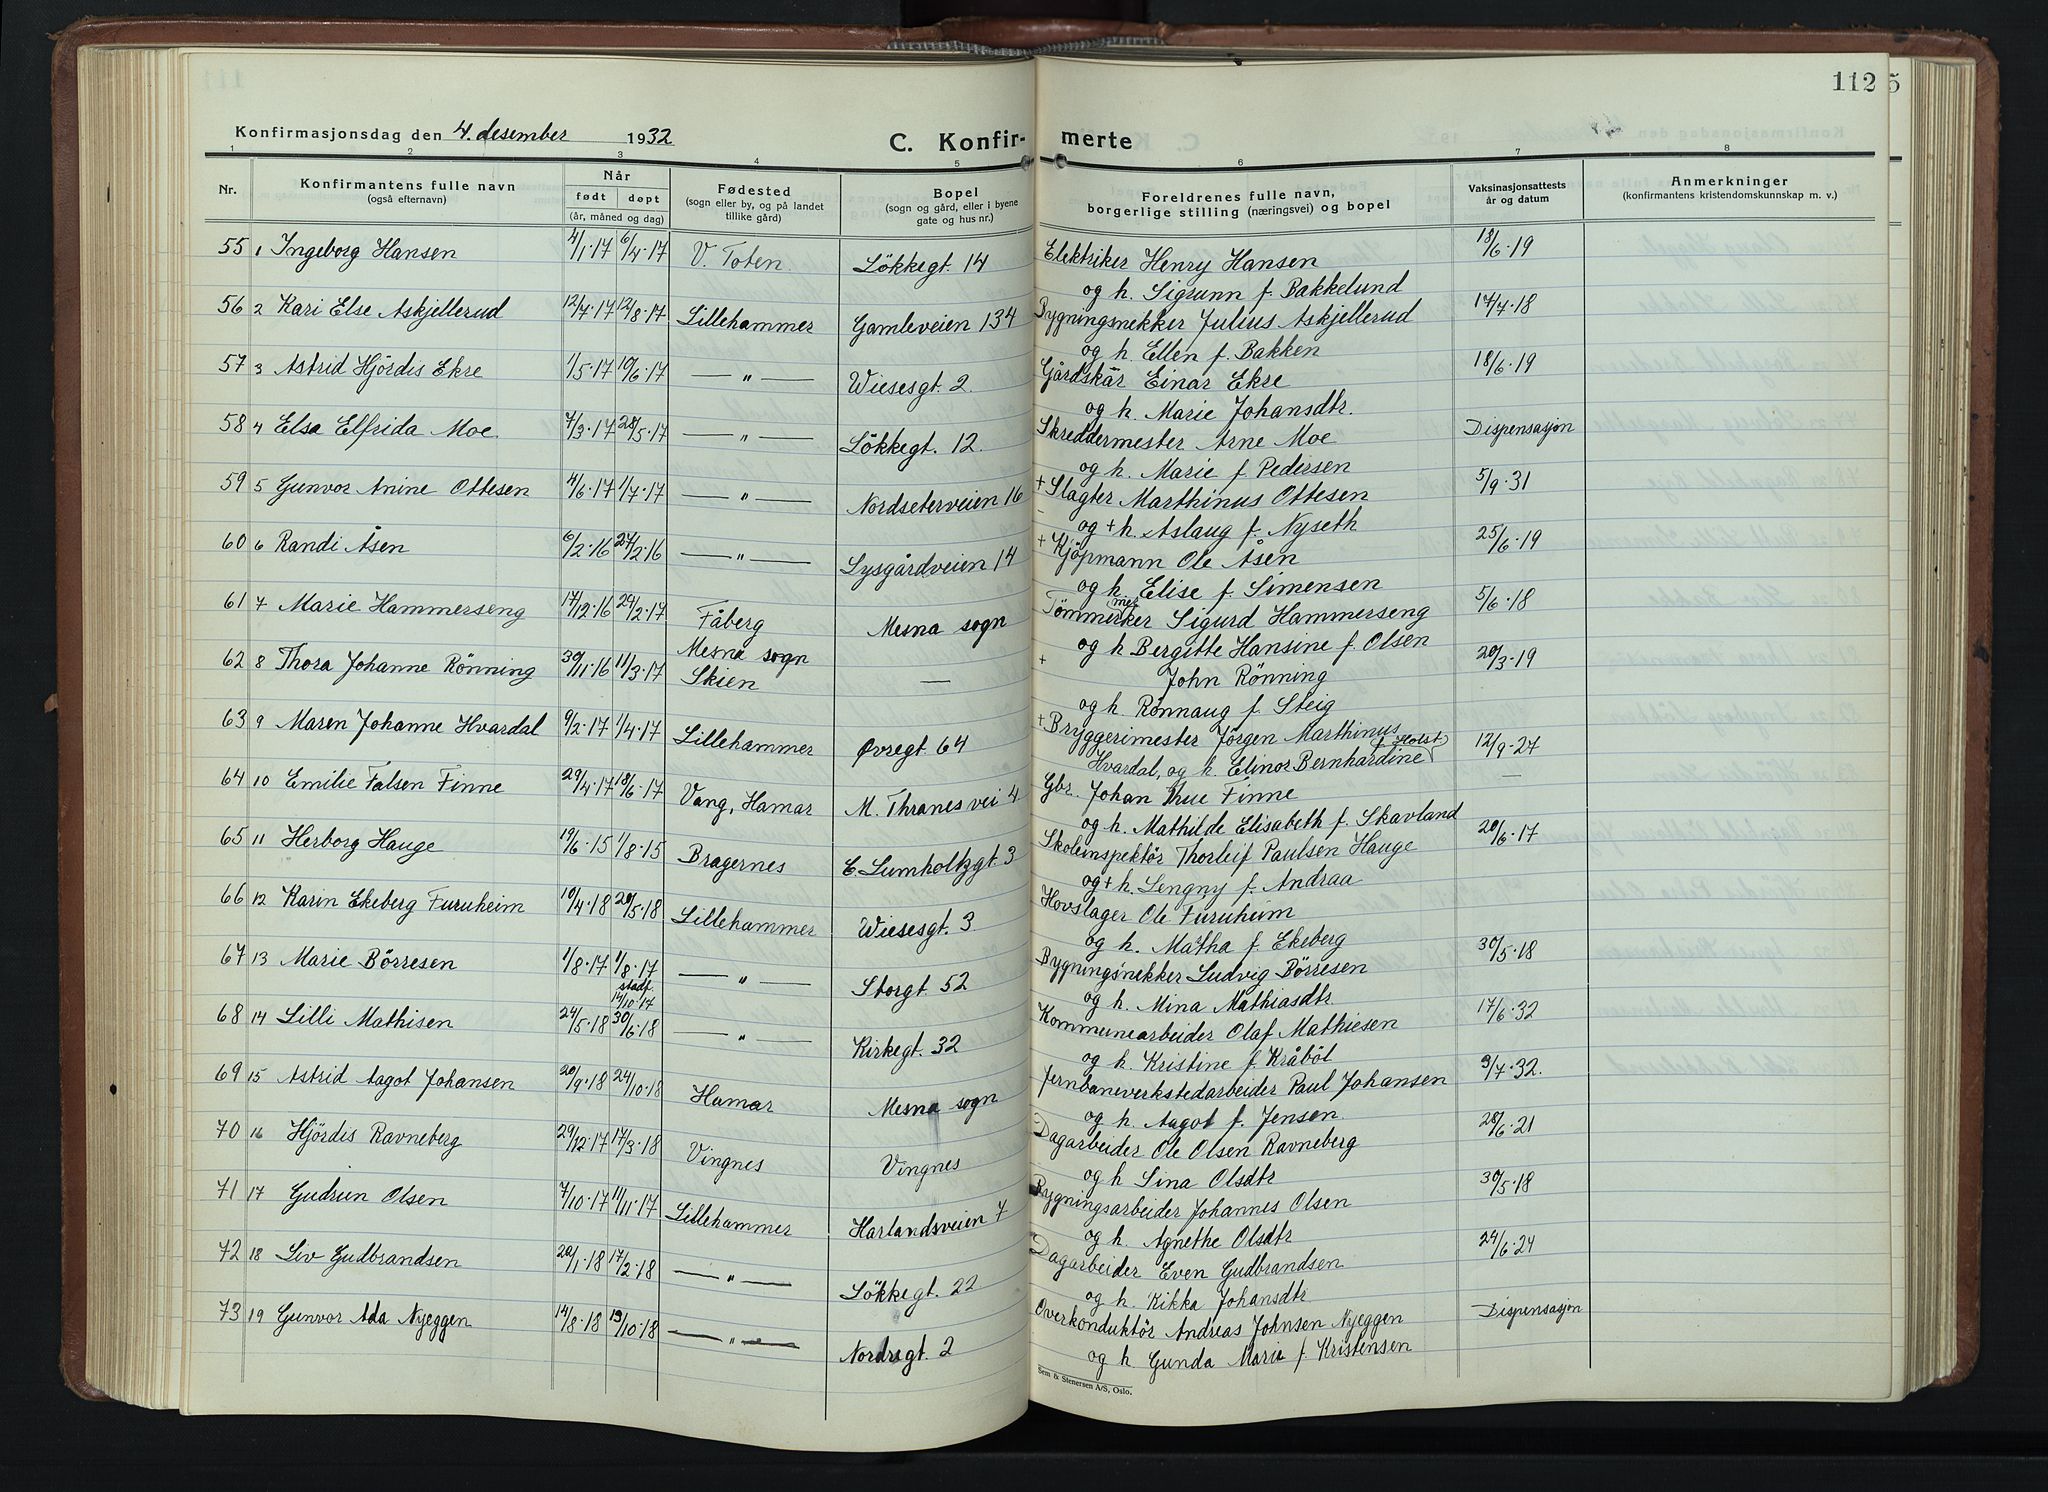 112
5
Konfirmasjonsdag den 4. desember 1932
C. Konfir-
merte
1 2 3 4 5 6 7 8
Nr.
Konfirmantens fulle navn
(også efternavn)
Når
født døpt
(år, måned og dag)
Fødested
(sogn eller by, og på landet
tillike gård)
Bopel
(sogn og gård, eller i byene
gate og hus nr.)
Foreldrenes fulle navn,
borgerlige stilling (næringsvei) og bopel
Vaksinasjonsattests
år og datum
Anmerkninger
(konfirmantens kristendomskunnskap m. v.)
55 1 Ingeborg Hansen 4/1·17 6/4·17 V. Toten. Lökkegt. 14 Elektriker Henry Hansen 18/6·19
og h. Sigrunn f. Bakkelund
56 2 Kari Else Askjellerud 12/7·17 12/8·17 Lillehammer Gamleveien 134 Bygningsnekker Julius Askjellerud 17/7·18
og h. Ellen f. Bakken
57 3 Astrid Hjördis Ekre 1/5·17 10/6·17 — „ — Wiesesgt. 2 Gårdskar Einar Ekre 18/6·19
og h. Marie Johansdtr.
58 4 Elsa Elfrida Moe 7/3·17 28/5·17 — „ — Lökkegt. 12. Skreddermester Arne Moe Dispensasjon
og h. Marie f. Pedersen
59 5 Gunvor Anine Ottesen 4/6·17 1/7·17 — „ — Nordseterveien 16 + Slagter Marthinus Ottesen 5/9·31
og + h. Aslaug f. Nyseth
60 6 Randi Åsen 6/2·16 27/2·16 — „ — Sysgårdveien 14 + Kjöpmann Ole Åsen 25/6·19
og h. Elise f. Simensen
61 7 Marie Hammerseng 17/12·16 24/2·17 Fåberg Mesna sogn Tømmermerker Sigurd Hammerseng 5/6·18
Mesna sogn og h Bergitte Hansine f. Olsen
62 8 Thora Johanne Rønning 30/11·16 11/3·17 Skien — + John Rønning 20/3·19
og h. Rønnaug f. Steig
63 9 Maren Johanne Hvardal 9/2·17 1/4·17 Lillehammer Øvregt. 64 + Bryggerimester Jörgen Marthinus 12/9·27
Hvardal, og h. Elinor Bernhardine f. Holst
64 10 Emilie Falsen Finne 29/4·17 18/6·17 Vang, Hamar M. Thranes vei 4 Gbr. Johan Thue Finne —
og h. Mathilde Elisabeth f. Skavland
65 11 Herborg Hauge 19/6·15 1/8·15 Bragernes C. Lumholtzgt. 3 Skoleinspektör Thorleif Paulsen Hauge 20/6·17
og + h. Lengny f. Andraa
66 12 Karin Ekeberg Furuheim 10/4·18 20/5·18 Lillehammer Wiesesgt. 3 Hovslager Ole Furuheim
og h. Martha f. Ekeberg
67 13 Marie Börresen 1/8·17 1/8·17 — „ — Storgt. 52 Bygningsnekker Ludvig Börresen 30/5·18
stadf. 14/10·17 og h. Mina Mathiasdtr.
68 14 Lilli Mathisen 24/5·18 30/6·18 — „ — Kirkegt. 32 Kommunearbeider Olaf Mathiesen 17/6·32
og h. Kristine f. Kråböl
69 15 Astrid Aagot Johansen 20/9·18 24/10·18 Hamar Mesna sogn Jernbaneverkstedarbeider Paul Johansen 9/7·32.
og h. Aagot f. Jensen.
70 16 Hjördis Ravneberg 29/12·17 17/3·18 Vingnes Vingnes Dagarbeider Ole Olsen Ravneberg 28/6·21
og h Sina Olsdtr
71 17 Gudrun Olsen 7/10·17 11/11·17 Lillehammer Harlandsveien 7 Bygningsarbeider Johannes Olsen 30/5·18
og h. Agnethe Olsdtr
72 18 Liv Gudbrandsen 20/1·18 17/2·18 — „ — Lökkegt. 22 Dagarbeider Even Gudbrandsen 24/6·24
og h. Kikka Johansdtr
73 19 Gunvor Ada Nyeggen 14/8·18 13/10·18 — „ — Nordregt. 2 Overkonduktör Andreas Johnsen Nyeggen Dispensasjon
og h Gunda Marie f. Kristensen
Sem & Stenersen A/S, Oslo.